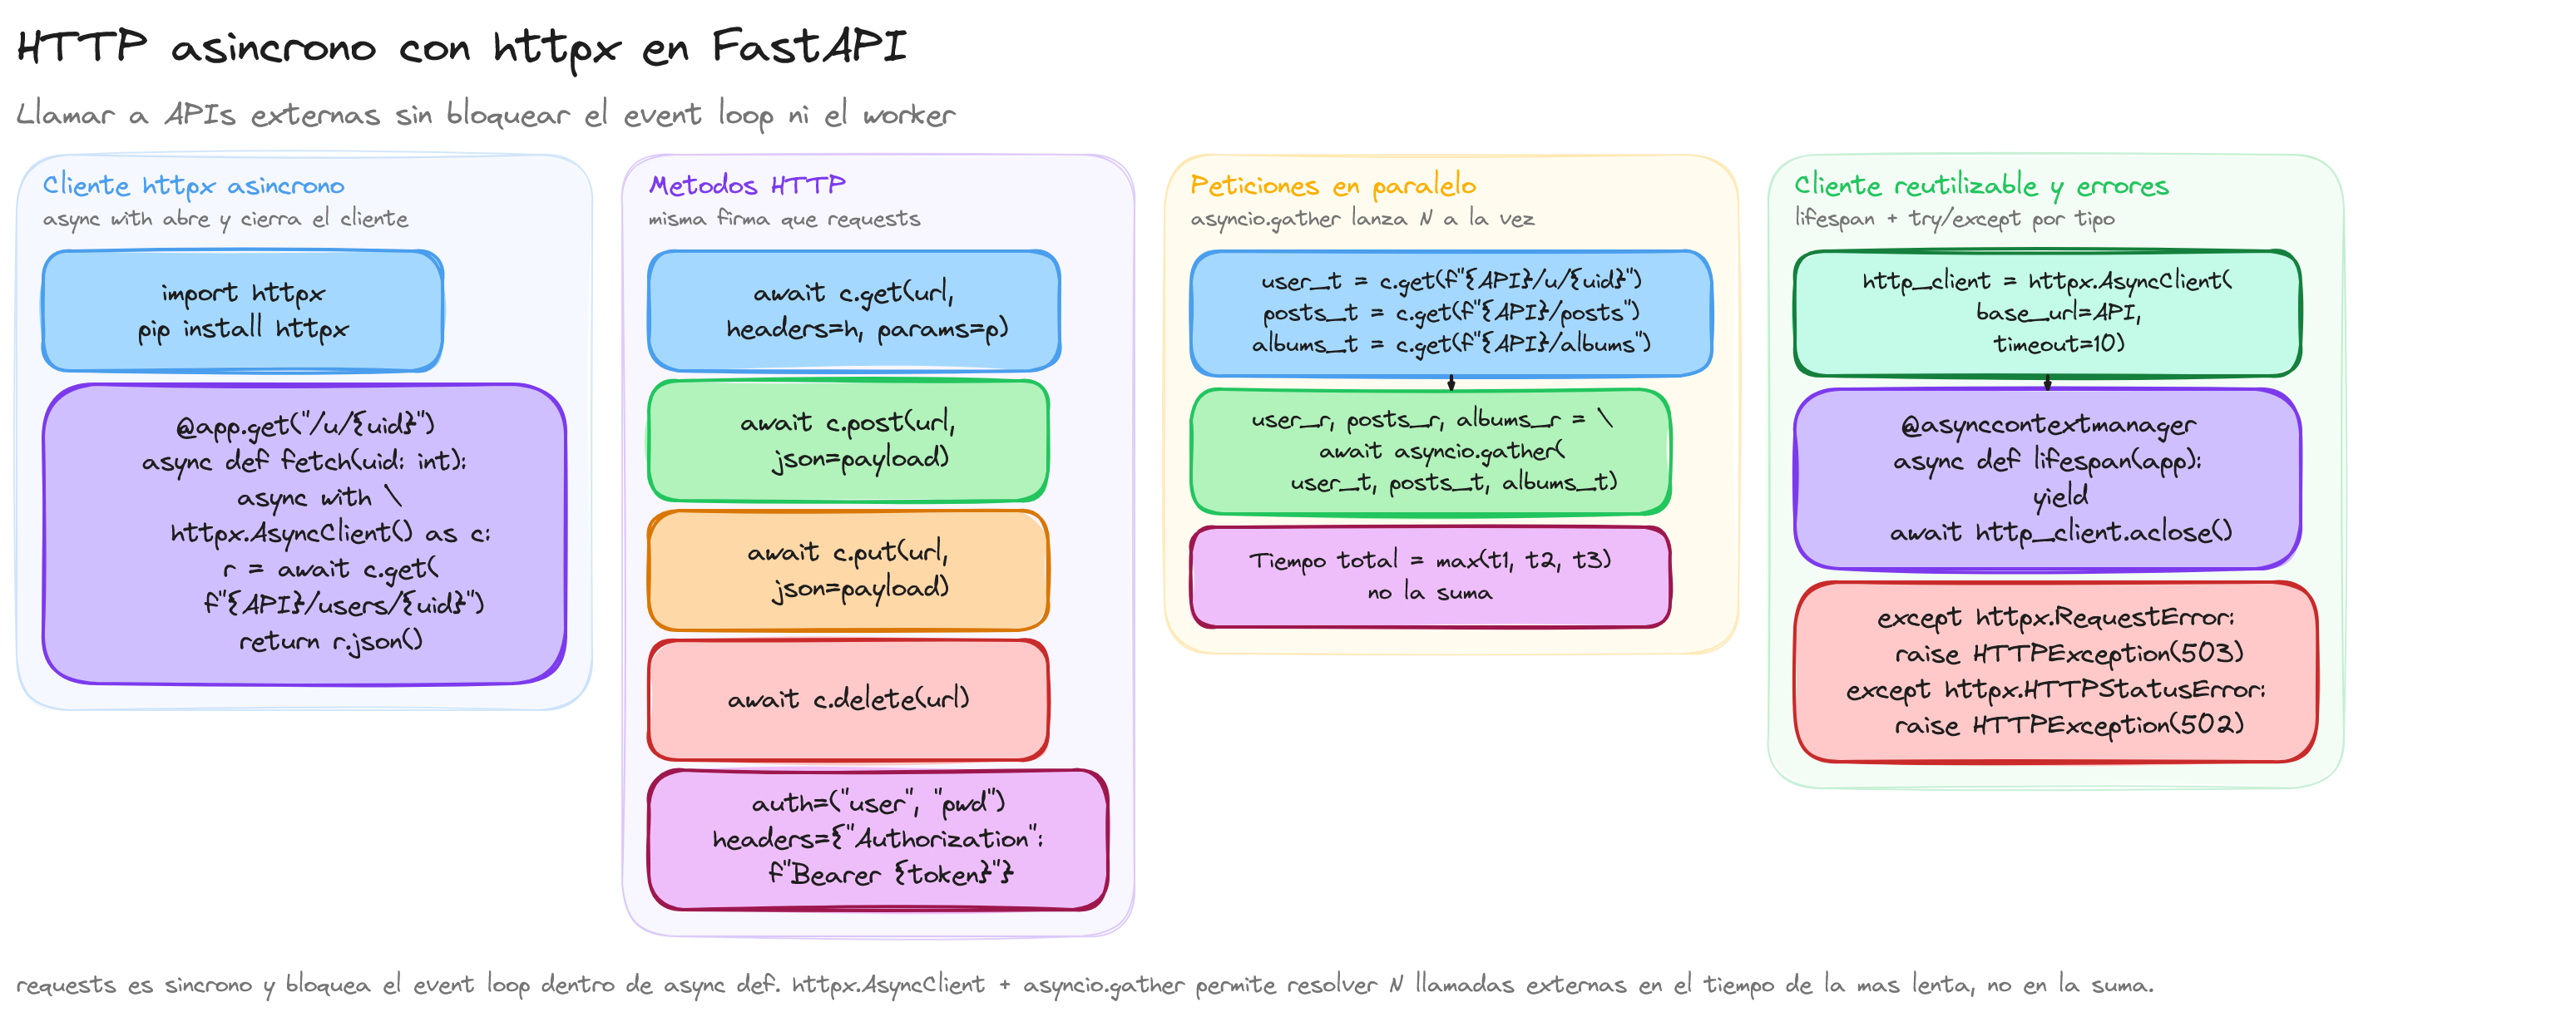 HTTP asincrono con httpx en FastAPI
Llamar a APIs externas sin bloquear el event loop ni el worker
Cliente httpx asincrono
async with abre y cierra el cliente
import httpx
pip install httpx
@app.get("/u/{uid}")
async def fetch(uid: int):
async with \
httpx.AsyncClient() as c:
r = await c.get(
f"{API}/users/{uid}")
return r.json()
Metodos HTTP
misma firma que requests
await c.get(url,
headers=h, params=p)
await c.post(url,
json=payload)
await c.put(url,
json=payload)
await c.delete(url)
auth=("user", "pwd")
headers={"Authorization":
f"Bearer {token}"}
Peticiones en paralelo
asyncio.gather lanza N a la vez
user_t = c.get(f"{API}/u/{uid}")
posts_t = c.get(f"{API}/posts")
albums_t = c.get(f"{API}/albums")
user_r, posts_r, albums_r = \
await asyncio.gather(
user_t, posts_t, albums_t)
Tiempo total = max(t1, t2, t3)
no la suma
Cliente reutilizable y errores
lifespan + try/except por tipo
http_client = httpx.AsyncClient(
base_url=API,
timeout=10)
@asynccontextmanager
async def lifespan(app):
yield
await http_client.aclose()
except httpx.RequestError:
raise HTTPException(503)
except httpx.HTTPStatusError:
raise HTTPException(502)
requests es sincrono y bloquea el event loop dentro de async def. httpx.AsyncClient + asyncio.gather permite resolver N llamadas externas en el tiempo de la mas lenta, no en la suma.